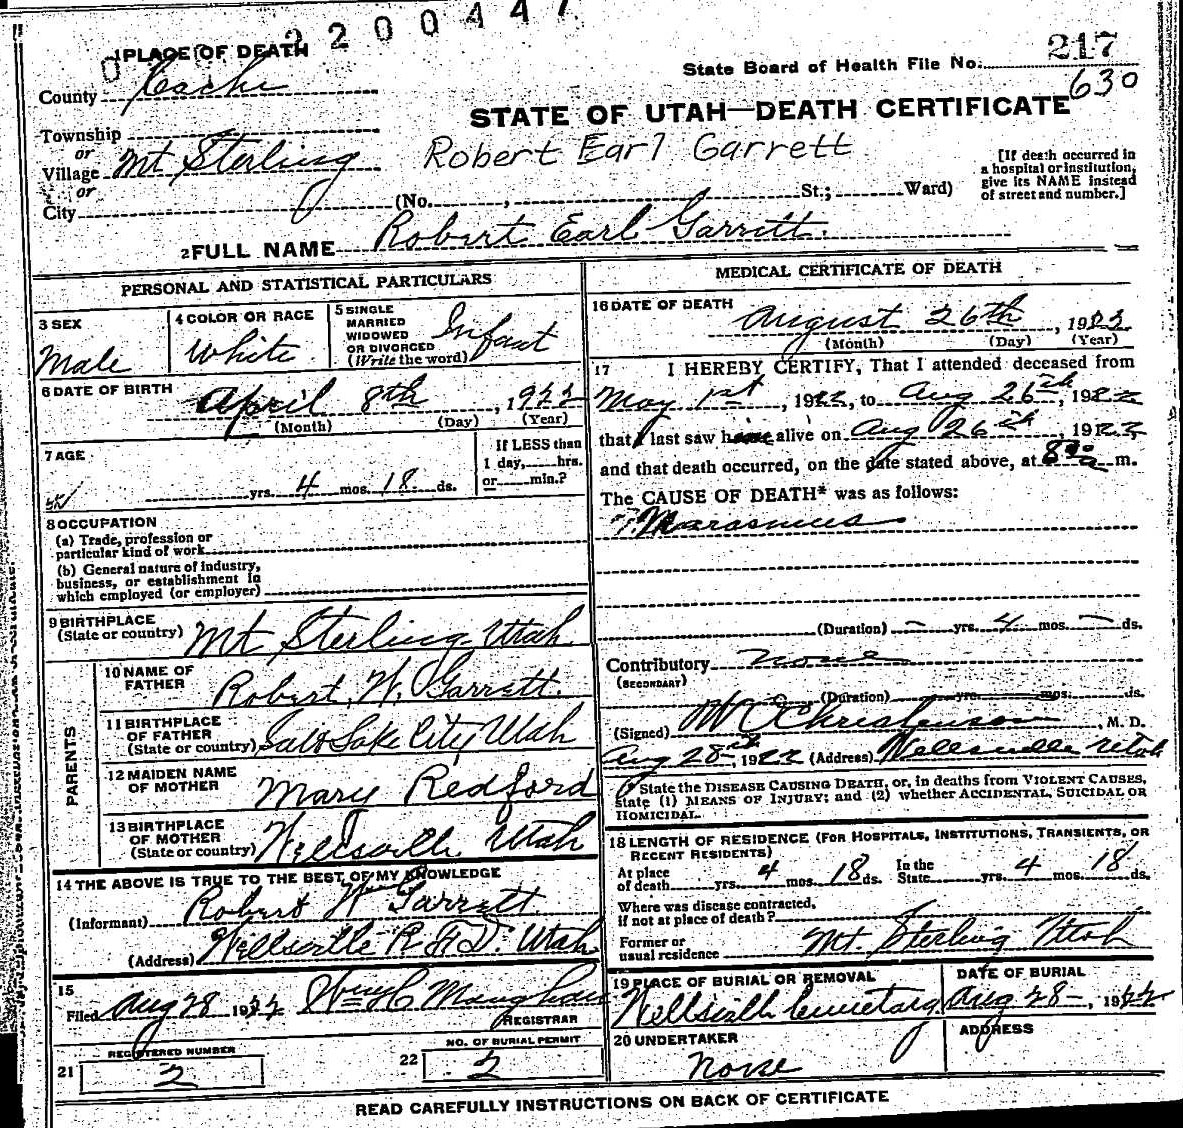 2200447
1 PLACE OF DEATH
County Cache
Township
or
Village Mt Sterling
or
City
(No. , St.; Ward)
State Board of Health File No. 217
630
STATE OF UTAH—DEATH CERTIFICATE
Robert Earl Garrett
[If death occurred in
a hospital or institution,
give its NAME instead
of street and number.]
2 FULL NAME Robert Earl Garritt.
PERSONAL AND STATISTICAL PARTICULARS
3 SEX
Male
4 COLOR OR RACE
White
5 SINGLE
MARRIED
WIDOWED
OR DIVORCED
(Write the word)
Infant
6 DATE OF BIRTH
April 8th , 1922
(Month) (Day) (Year)
7 AGE
yrs. 4 mos. 18 ds.
If LESS than
1 day, hrs.
or min.?
8 OCCUPATION
(a) Trade, profession or
particular kind of work
(b) General nature of industry,
business, or establishment in
which employed (or employer)
9 BIRTHPLACE
(State or country) Mt Sterling Utah
PARENTS
10 NAME OF
FATHER
Robert W. Garrett.
11 BIRTHPLACE
OF FATHER
(State or country) Salt Lake City Utah
12 MAIDEN NAME
OF MOTHER
Mary Redford
13 BIRTHPLACE
OF MOTHER
(State or country) Wellsville Utah
14 THE ABOVE IS TRUE TO THE BEST OF MY KNOWLEDGE
(Informant) Robert W Garrett.
(Address) Wellsville R.F.D. Utah
15
Filed Aug 28 1922 Wm H Maughan
REGISTRAR
21 REGISTERED NUMBER
2
22 NO. OF BURIAL PERMIT
2
MEDICAL CERTIFICATE OF DEATH
16 DATE OF DEATH
August 26th , 1922
(Month) (Day) (Year)
17 I HEREBY CERTIFY, That I attended deceased from
May 1st , 1922, to Aug 26th , 1922
that I last saw him alive on Aug 26th , 1922,
and that death occurred, on the date stated above, at 8 00 a m.
The CAUSE OF DEATH* was as follows:
Marasmus
(Duration) – yrs. 4 mos. – ds.
Contributory none
(SECONDARY)
(Duration) yrs. mos. ds.
(Signed) Christenson , M. D.
Aug 28th , 1922 (Address) Wellsville Utah
State the DISEASE CAUSING DEATH, or, in deaths from VIOLENT CAUSES,
state (1) MEANS OF INJURY; and (2) whether ACCIDENTAL, SUICIDAL OR
HOMICIDAL.
18 LENGTH OF RESIDENCE (FOR HOSPITALS, INSTITUTIONS, TRANSIENTS, OR
RECENT RESIDENTS)
At place
of death yrs. 4 mos. 18 ds. In the
State yrs. 4 mos. 18 ds.
Where was disease contracted,
if not at place of death?
Former or
usual residence Mt. Sterling Utah
19 PLACE OF BURIAL OR REMOVAL
Wellsville Cemetary
DATE OF BURIAL
Aug 28 , 1922
20 UNDERTAKER
None
ADDRESS
READ CAREFULLY INSTRUCTIONS ON BACK OF CERTIFICATE